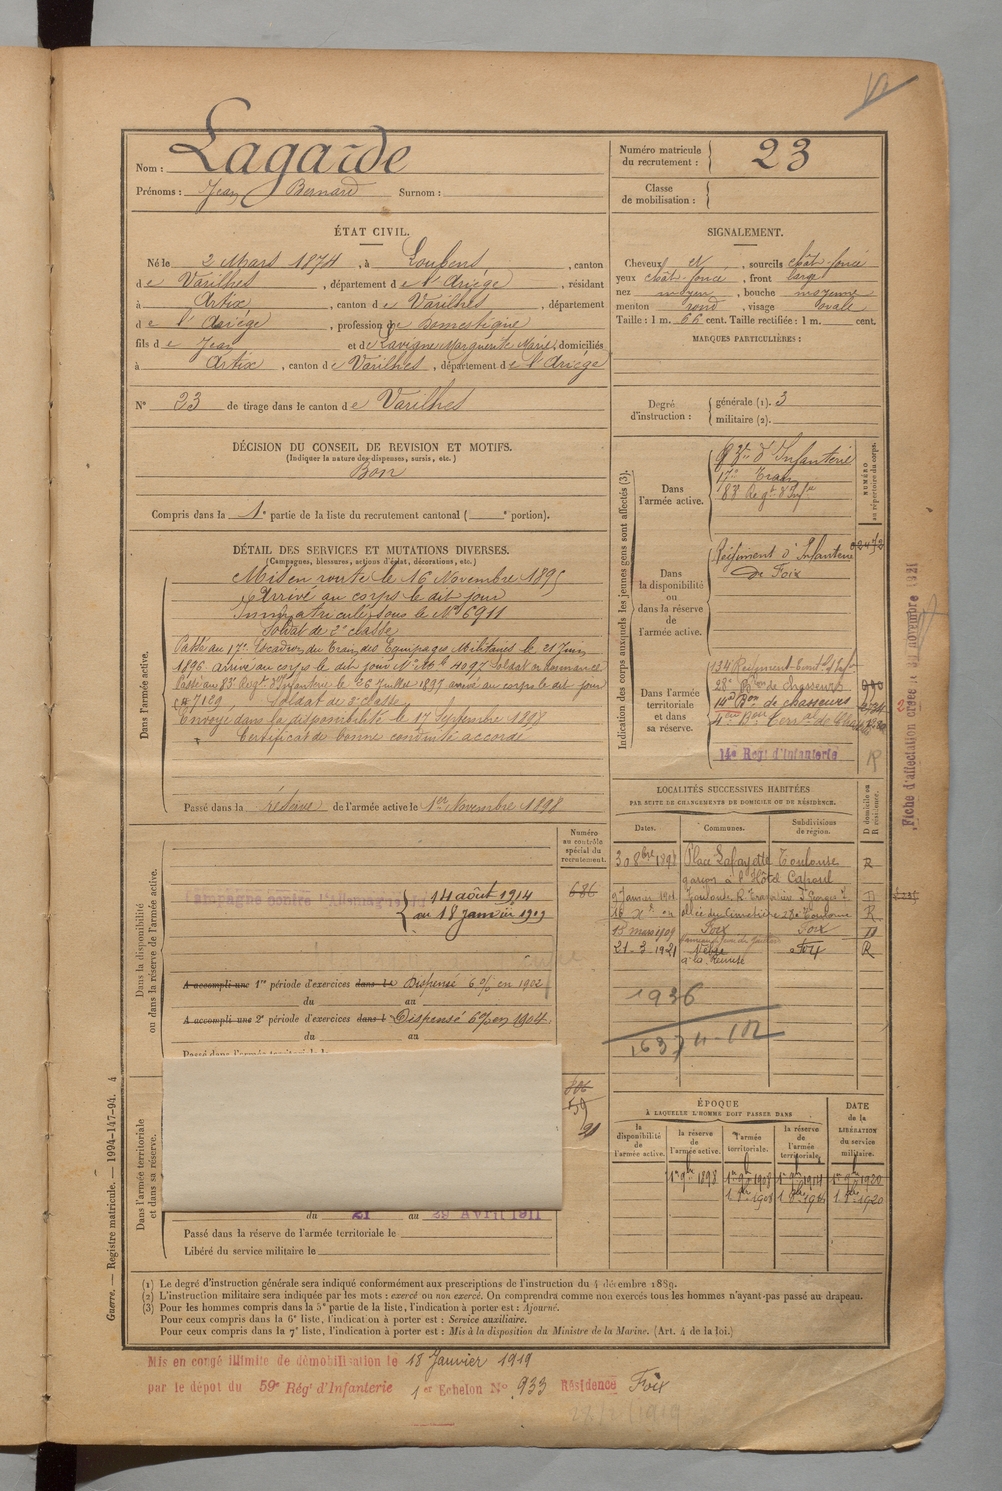 Nom : Lagarde
Prénoms : Jean Bernard Surnom :
Numéro matricule du recrutement : 23
Classe de mobilisation :
ÉTAT CIVIL.
Né le 2 Mars 1874, à Loubens, canton
de Varilhes, département de l'Ariége, résidant
à Artix, canton de Varilhes, département
de l'Ariége, profession de Domestique
fils de Jean et de Lavigne Marguerite Marie, domiciliés
à Artix, canton de Varilhes, département de l'Ariége
N° 23 de tirage dans le canton de Varilhes
SIGNALEMENT.
Cheveux et, sourcils chât-foncé
yeux chât-foncé, front large
nez moyen, bouche moyenne
menton rond, visage ovale
Taille : 1 m. 66 cent. Taille rectifiée : 1 m. cent.
MARQUES PARTICULIÈRES :
Degré d'instruction : générale (1). 3
militaire (2).
DÉCISION DU CONSEIL DE REVISION ET MOTIFS.
(Indiquer la nature des dispenses, sursis, etc.)
Bon
Compris dans la 1e partie de la liste du recrutement cantonal ( e portion).
DÉTAIL DES SERVICES ET MUTATIONS DIVERSES.
(Campagnes, blessures, actions d'éclat, décorations, etc.)
Dans l'armée active.
Mis en route le 16 Novembre 1895
Arrivé au corps le dit jour
Immatriculé sous le No 6911
Soldat de 2e classe
Passé au 17e Escadron du Train des Equipages Militaires le 21 Juin
1896 arrivé au corps le dit jour No Mle 4097 Soldat
Passé au 83e Regt d'Infanterie le 26 Juillet 1897 arrivé au corps le dit jour
7129 Soldat de 2e classe
Envoyé dans la disponibilité le 17 Septembre 1898
Certificat de bonne conduite accordé
Passé dans la réserve de l'armée active le 1er Novembre 1898
Indication des corps auxquels les jeunes gens sont affectés (3).
NUMÉRO au répertoire du corps.
Dans l'armée active.
d'Infanterie
17e Train
83e Regt d'Infie
Dans la disponibilité ou dans la réserve de l'armée active.
Régiment d'Infanterie
de Foix
Dans l'armée territoriale et dans sa réserve.
134 Régiment Territ d'Inf
28e Bon de Chasseurs
14e Bon de chasseurs
4e Bon Terr. de
14e Regt d'Infanterie
R
Fiche d'affectation créée le 30 novembre 1921
LOCALITÉS SUCCESSIVES HABITÉES
PAR SUITE DE CHANGEMENTS DE DOMICILE OU DE RÉSIDENCE.
Dates. Communes. Subdivisions de région. D domicile ou R résidence.
30 8bre 1898 Place Lafayette Toulouse R
garçon à l'Hôtel Capoul
9 Janvier 1901 Toulouse R D
16 Toulouse R
15 mars 1909 Foix Foix D
21-3-1921 Foix R
1936
Dans la disponibilité ou dans la réserve de l'armée active.
Numéro au contrôle spécial du recrutement.
686
Campagne contre l'Allemagne
14 août 1914
au 18 janvier 1919
A accompli une 1re période d'exercices dans le Dispensé 6% en 1902
du au
A accompli une 2e période d'exercices dans l Dispensé 6% en 1904.
du au
Passé dans l'armée territoriale le
Dans l'armée territoriale et dans sa réserve.
59
du 21 au 29 Avril 1911
Passé dans la réserve de l'armée territoriale le
Libéré du service militaire le
ÉPOQUE
À LAQUELLE L'HOMME DOIT PASSER DANS
DATE de la LIBÉRATION du service militaire.
la disponibilité de l'armée active. la réserve de l'armée active. l'armée territoriale. la réserve de l'armée territoriale.
1er 9bre 1898 1er 9bre 1908 1er 9bre 1914 1er 9bre 1920
1 8bre 1908 1 8bre 1914 1 8bre 1920
(1) Le degré d'instruction générale sera indiqué conformément aux prescriptions de l'instruction du 4 décembre 1889.
(2) L'instruction militaire sera indiquée par les mots : exercé ou non exercé. On comprendra comme non exercés tous les hommes n'ayant pas passé au drapeau.
(3) Pour les hommes compris dans la 5e partie de la liste, l'indication à porter est : Ajourné.
Pour ceux compris dans la 6e liste, l'indication à porter est : Service auxiliaire.
Pour ceux compris dans la 7e liste, l'indication à porter est : Mis à la disposition du Ministre de la Marine. (Art. 4 de la loi.)
Guerre. — Registre matricule. — 1994-147-94. 4
Mis en congé illimité de démobilisation le 18 Janvier 1919
par le dépot du 59e Rég' d'Infanterie 1er Echelon No 933 Résidence Foix